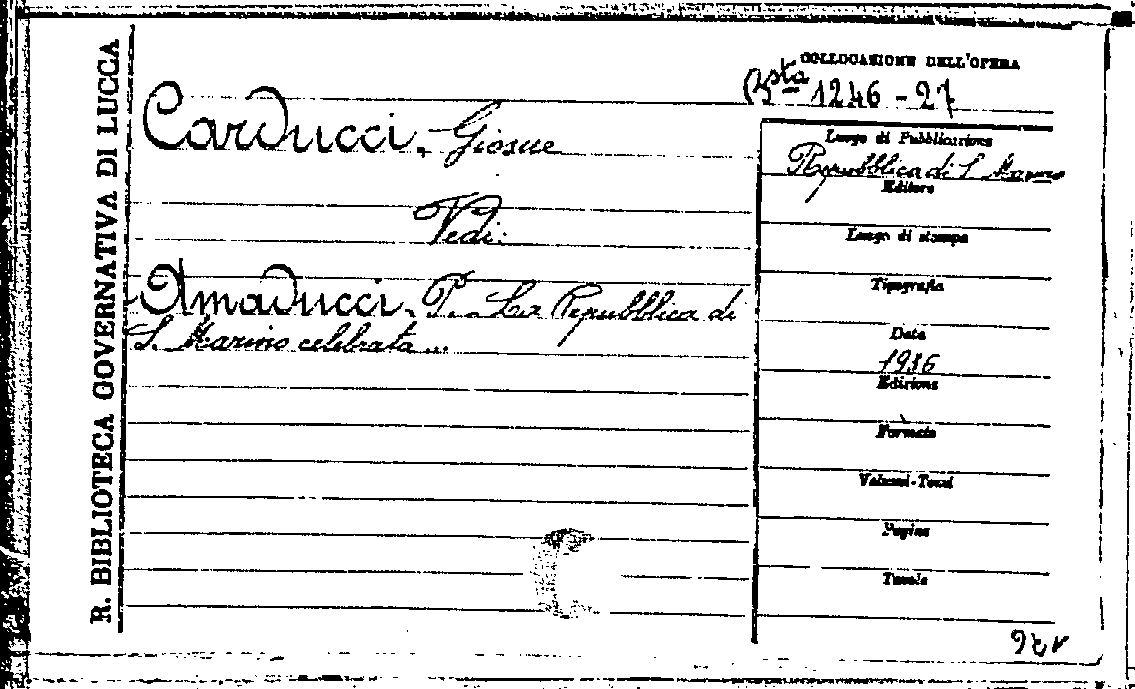 R. BIBLIOTECA GOVERNATIVA DI LUCCA
COLLOCAZIONE DELL'OPERA
Bsta 1246-27
Carducci, Giosue
Vedi:
Amaducci, P. La Repubblica di
S. Marino celebrata...
Luogo di Pubblicazione
Repubblica di S. Marino
Editore
Luogo di stampa
Tipografia
Data
1936
Edizione
Formato
Volumi-Tomi
Pagine
Tavole